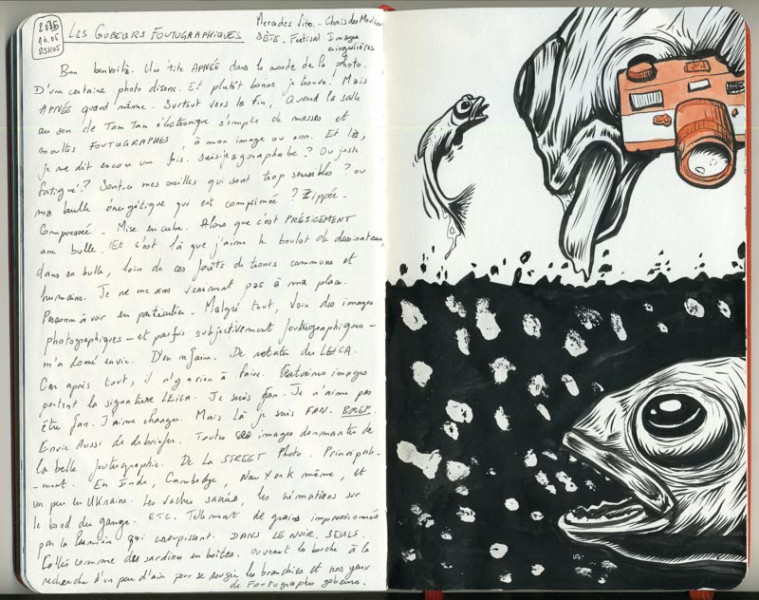 2016
16.05
23H05
LES GOBEURS FOUTUGRAPHIQUES
Mercedes Vito. - Chais des Moulins
SÈTE. Festival Images
singulières
Bon ben voilà. Une 'tite APNÉE dans le monde de la photo.
D'une certaine photo disons. Et plutôt bonne je trouve. Mais
APNÉE quand même. Surtout vers la fin, quand la salle
au son de Tam Tam électronique s'emplie de masse et
moultes FOUTUGRAPHES, à mon image ou non. Et là,
je me dit encore une fois. Suis-je agoraphobe? Ou juste
fatigué? Sont-ce mes oreilles qui sont trop sensibles? ou
ma bulle énergétique qui est comprimée? Zippée.
Compressée. Mise en cube. Alors que c'est PRÉCISEMENT
une bulle. Et c'est là que j'aime le boulot de dessinateur
dans sa bulle, loin de ces forêts de troncs communs et
humains. Je ne me sens vraiment pas à ma place.
Personne à voir en particulier. Malgré tout, voir des images
photographiques - et parfois subjectivement foutugraphiques -
m'a donné envie. D'en refaire. De retater du LEICA.
Car après tout, il n'y a rien à faire. Certaines images
portent la signature LEICA. Je suis fan. Je n'aime pas
être fan. J'aime changer. Mais là je suis FAN. BREF.
Envie aussi de débriefer. Toutes images donnantes de
la belle foutugraphie. De la STREET Photo. Principale-
-ment. En Inde, Cambodge, New York même, et
un peu en Ukraine. Les vaches sacrées, les crémations sur
le bord du gange. ETC. Tellement de grains impressionnés
par la lumière qui croupissent. DANS LE NOIR. SEULS.
Collés comme des sardines en boites. ouvrant la bouche à la
recherche d'un peu d'air pour se rougir les branchies et nos yeux
de Foutugraphes gobeurs.